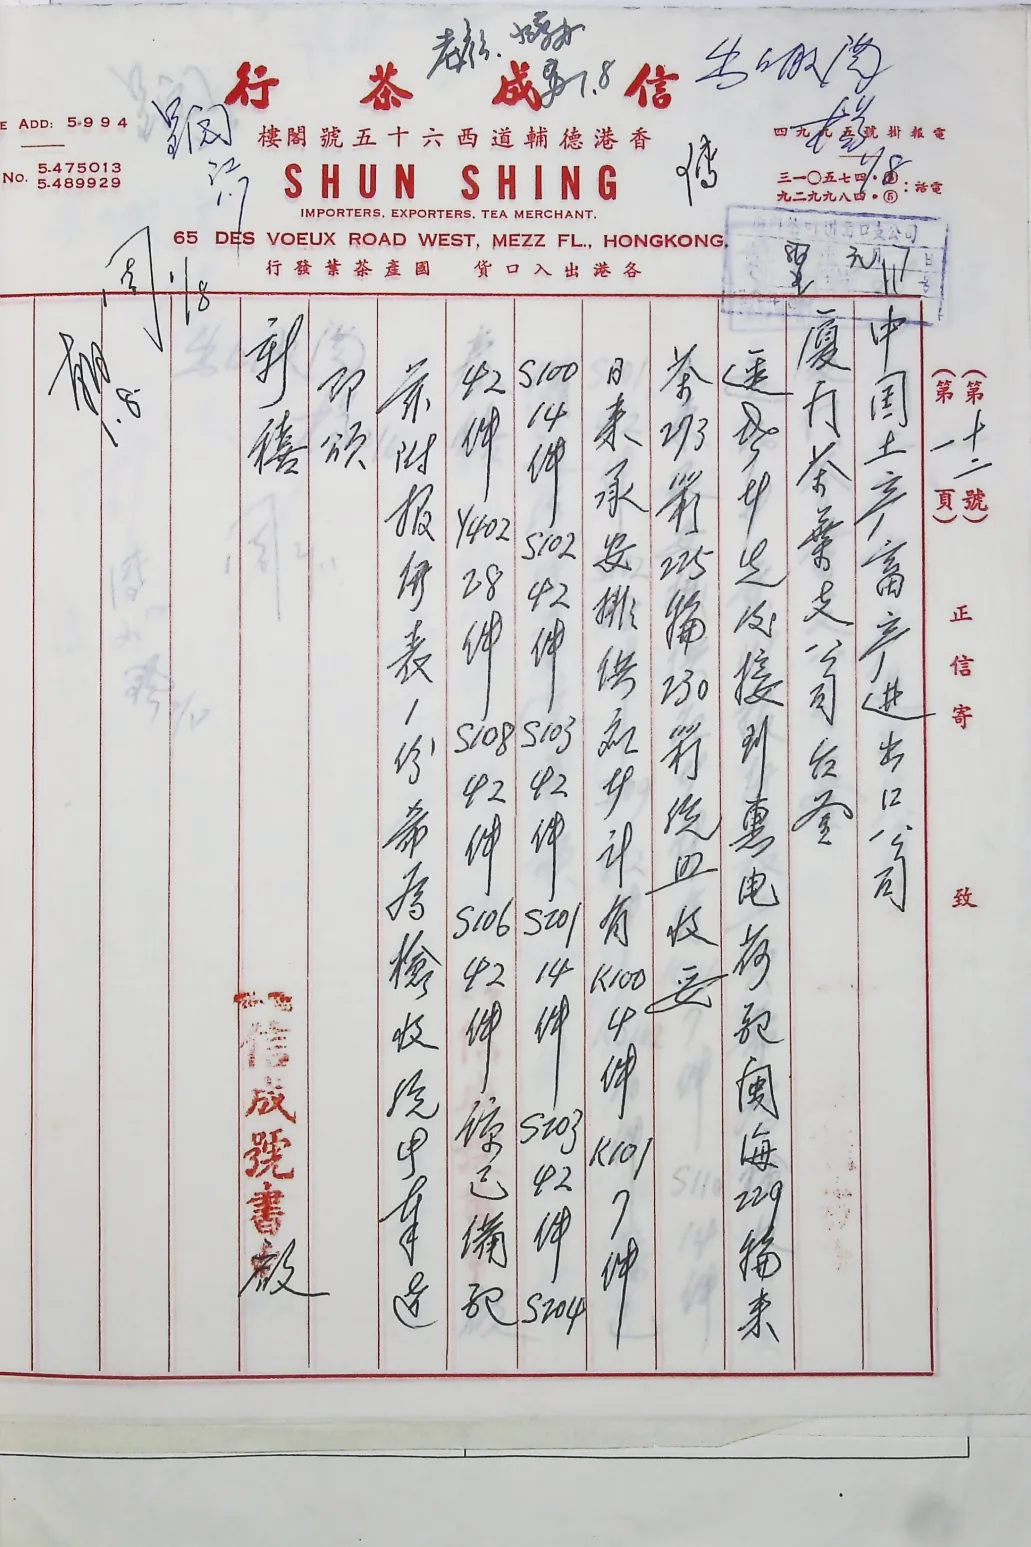 信成茶行
香港德輔道西六十五號閣樓
SHUN SHING
IMPORTERS. EXPORTERS. TEA MERCHANT.
65 DES VOEUX ROAD WEST, MEZZ FL., HONGKONG.
各港出入口貨 國產茶葉發行
E ADD: 5994
No. 5-475013
5-489929
電報掛號五九九四
電話
三一〇五七四·
九二九九八四·
出口股阅
1/8
1.8
元 17
(第十二號)
(第一頁)
正信寄
致
中国土产畜产进出口公司
厦门茶葉支公司台鉴
迳啓者先后接到惠电荷配闽海229輪来
茶273箱225輪230箱统照收妥
日来承安排供应者计有K100 4件K101 7件
S100 14件S102 42件S103 42件S201 14件S203 42件S204
42件Y402 28件S108 42件S106 42件谅已備配
兹附报价表1份希爲檢收统申奉达
即颂
新禧
信成號書啟
周 1/8
1.8